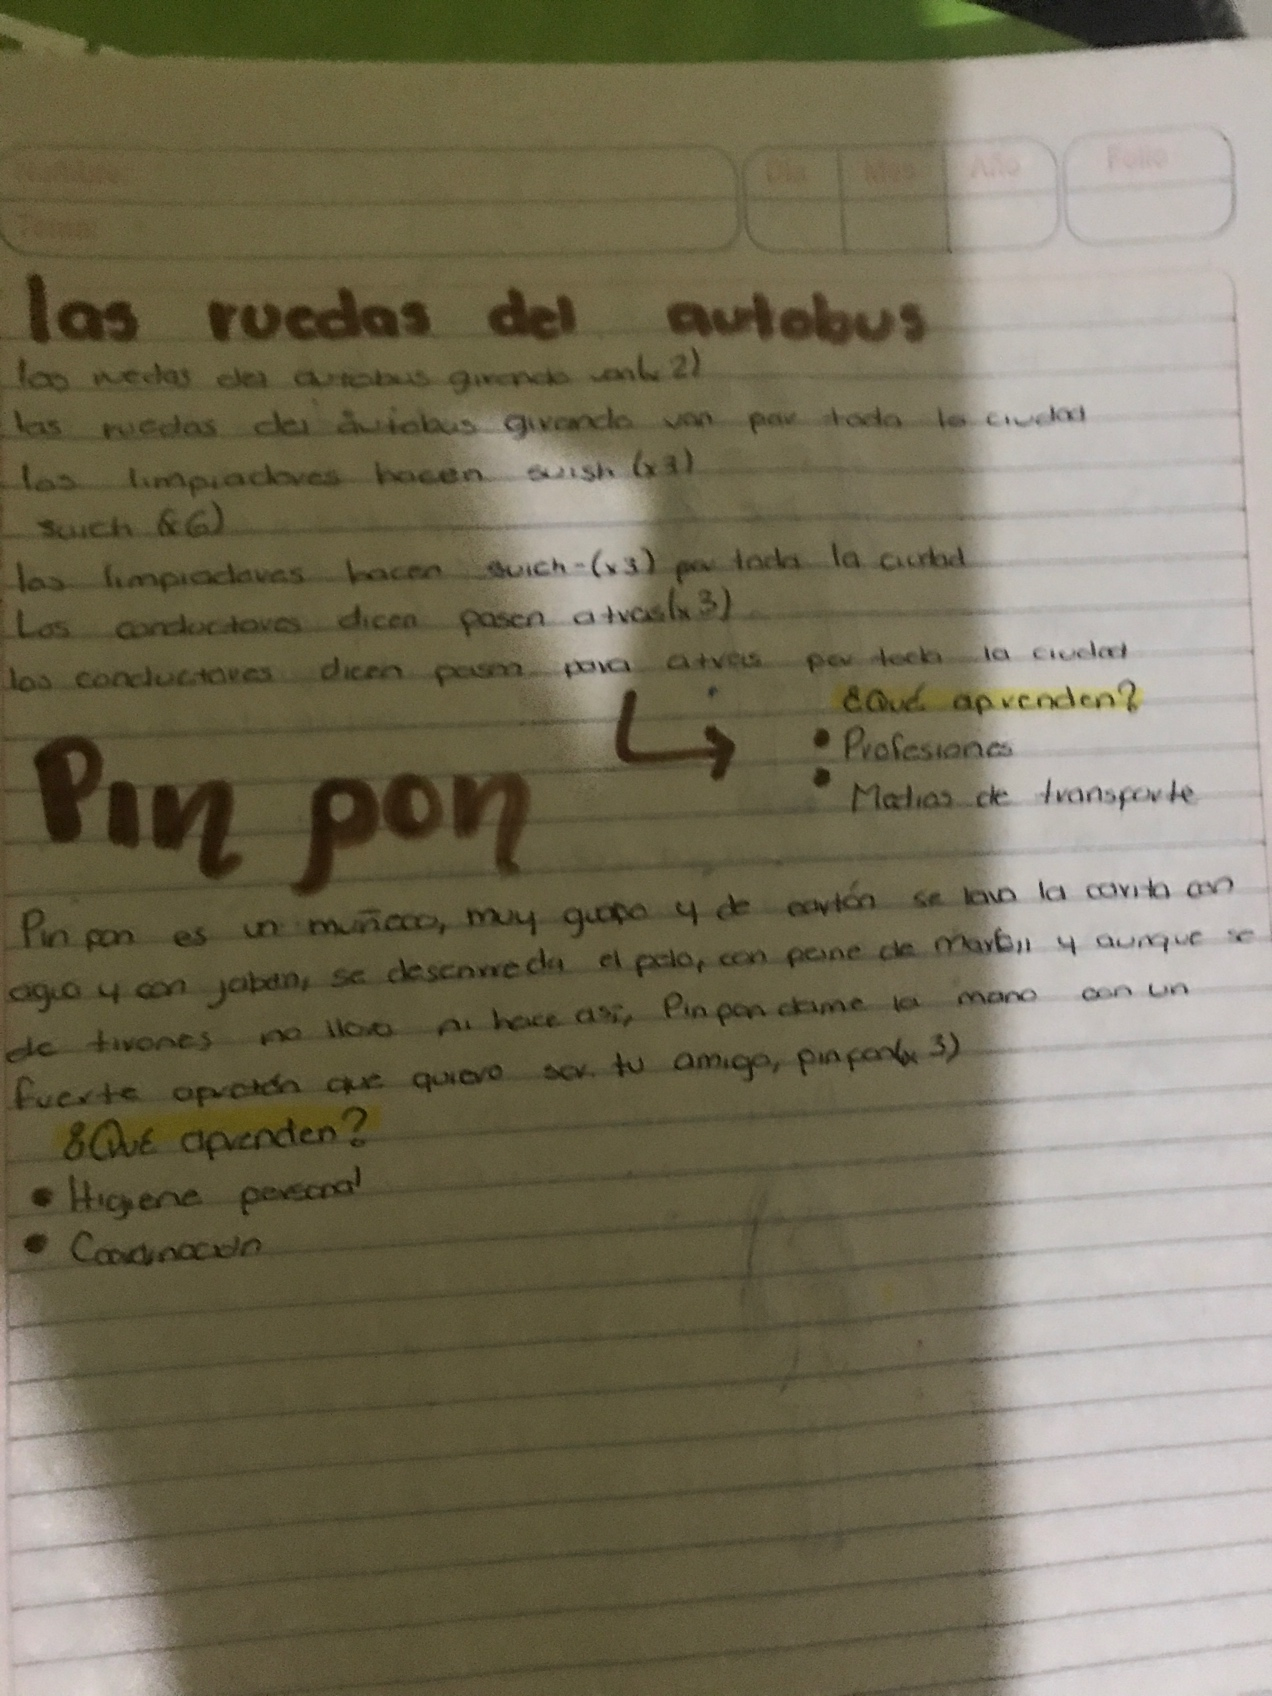 Nombre:
Tema:
Día Mes Año Folio
las ruedas del autobus
las ruedas del autobus girando van(x2)
las ruedas del autobus girando van por toda la ciudad
los limpiadores hacen swish (x3)
suich (x6)
los limpiadores hacen suich-(x3) por toda la ciudad
Los conductores dicen pasen atras(x3)
los conductores dicen pasen para atras por toda la ciudad
¿Qué aprenden?
• Profesiones
• Medios de transporte
Pin pon
Pin pon es un muñeco, muy guapo y de cartón se lava la carita con
agua y con jabon, se desenreda el pelo, con peine de Marfil y aunque se
de tirones no llora ni hace así, Pin pon dame la mano con un
fuerte apretón que quiero ser tu amigo, pin pon(x3)
¿Qué aprenden?
• Higiene personal
• Coordinación